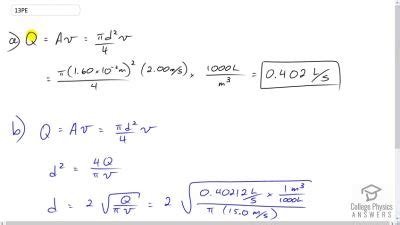 13PE
a) Q = Av = πd²/4 v
= π(1.60×10⁻²m)²/4 (2.00m/s) × 1000L/m³ = 0.402 L/s
b) Q = Av = πd²/4 v
d² = 4Q/πv
d = 2 √(Q/πv) = 2 √(0.40212 L/s × 1m³/1000L / π (15.0 m/s))
College Physics
Answers